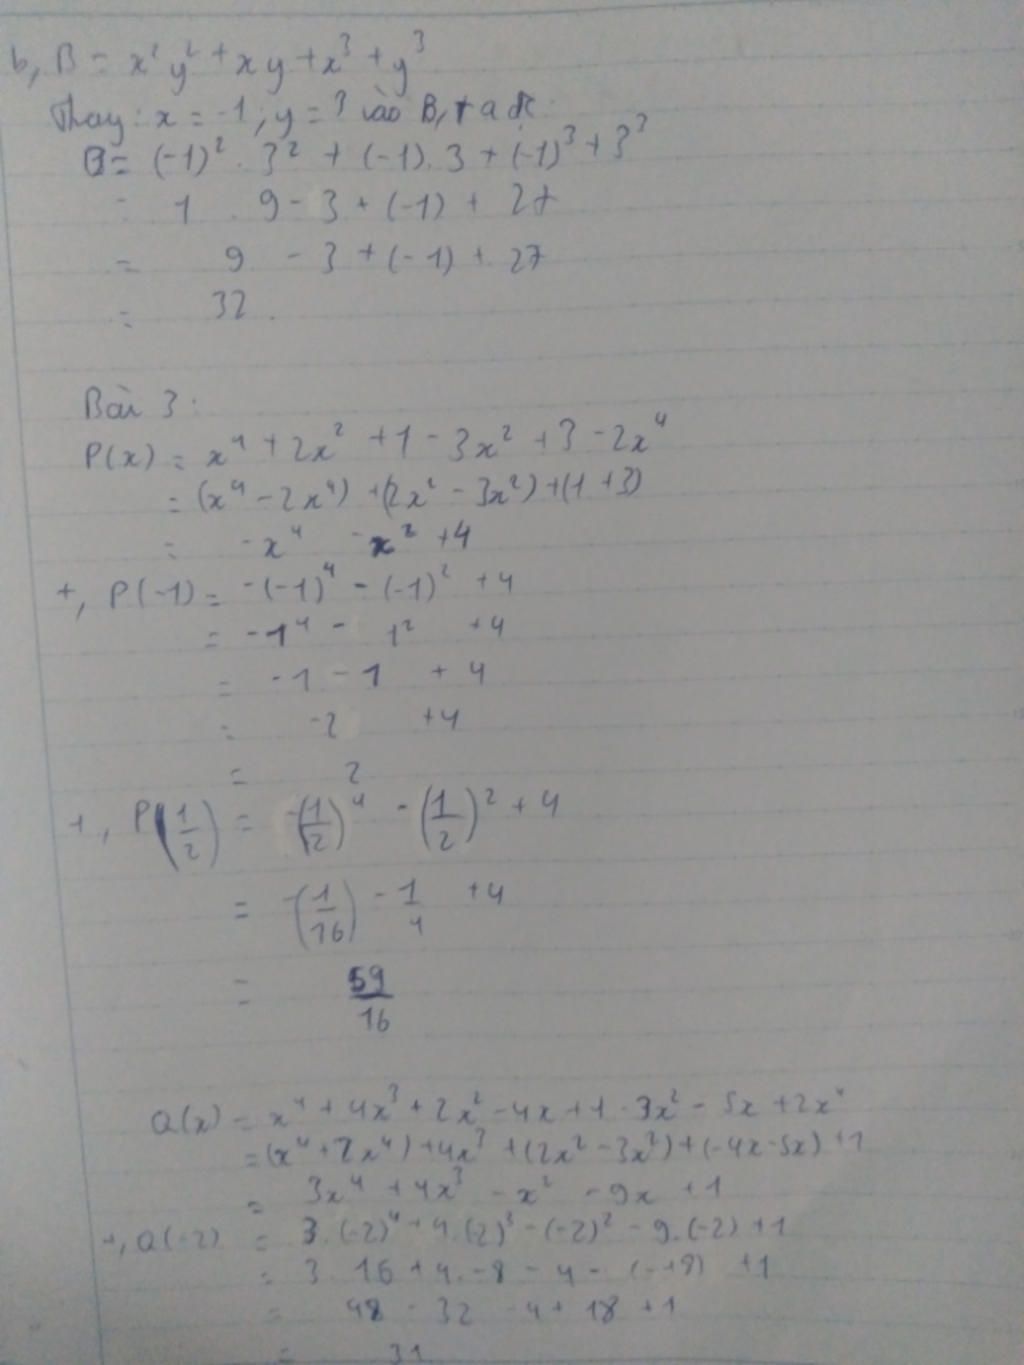 b, B = x²y² + xy + x³ + y³
Thay: x = -1; y = 3 vào B, ta đc:
B = (-1)² . 3² + (-1). 3 + (-1)³ + 3³
= 1 . 9 - 3 + (-1) + 27
= 9 - 3 + (-1) + 27
= 32.
Bài 3:
P(x) = x⁴ + 2x² + 1 - 3x² + 3 - 2x⁴
= (x⁴ - 2x⁴) + (2x² - 3x²) + (1 + 3)
= -x⁴ - x² + 4
+, P(-1) = -(-1)⁴ - (-1)² + 4
= -1⁴ - 1² + 4
= -1 - 1 + 4
= -2 + 4
= 2
+, P(1/2) = -(1/2)⁴ - (1/2)² + 4
= -(1/16) - 1/4 + 4
= 59/16
Q(x) = x⁴ + 4x³ + 2x² - 4x + 1 - 3x² - 5x + 2x⁴
= (x⁴ + 2x⁴) + 4x³ + (2x² - 3x²) + (-4x - 5x) + 1
= 3x⁴ + 4x³ - x² - 9x + 1
+, Q(-2) = 3.(-2)⁴ + 4.(-2)³ - (-2)² - 9.(-2) + 1
= 3 . 16 + 4. -8 - 4 - (-18) + 1
= 48 - 32 - 4 + 18 + 1
= 31